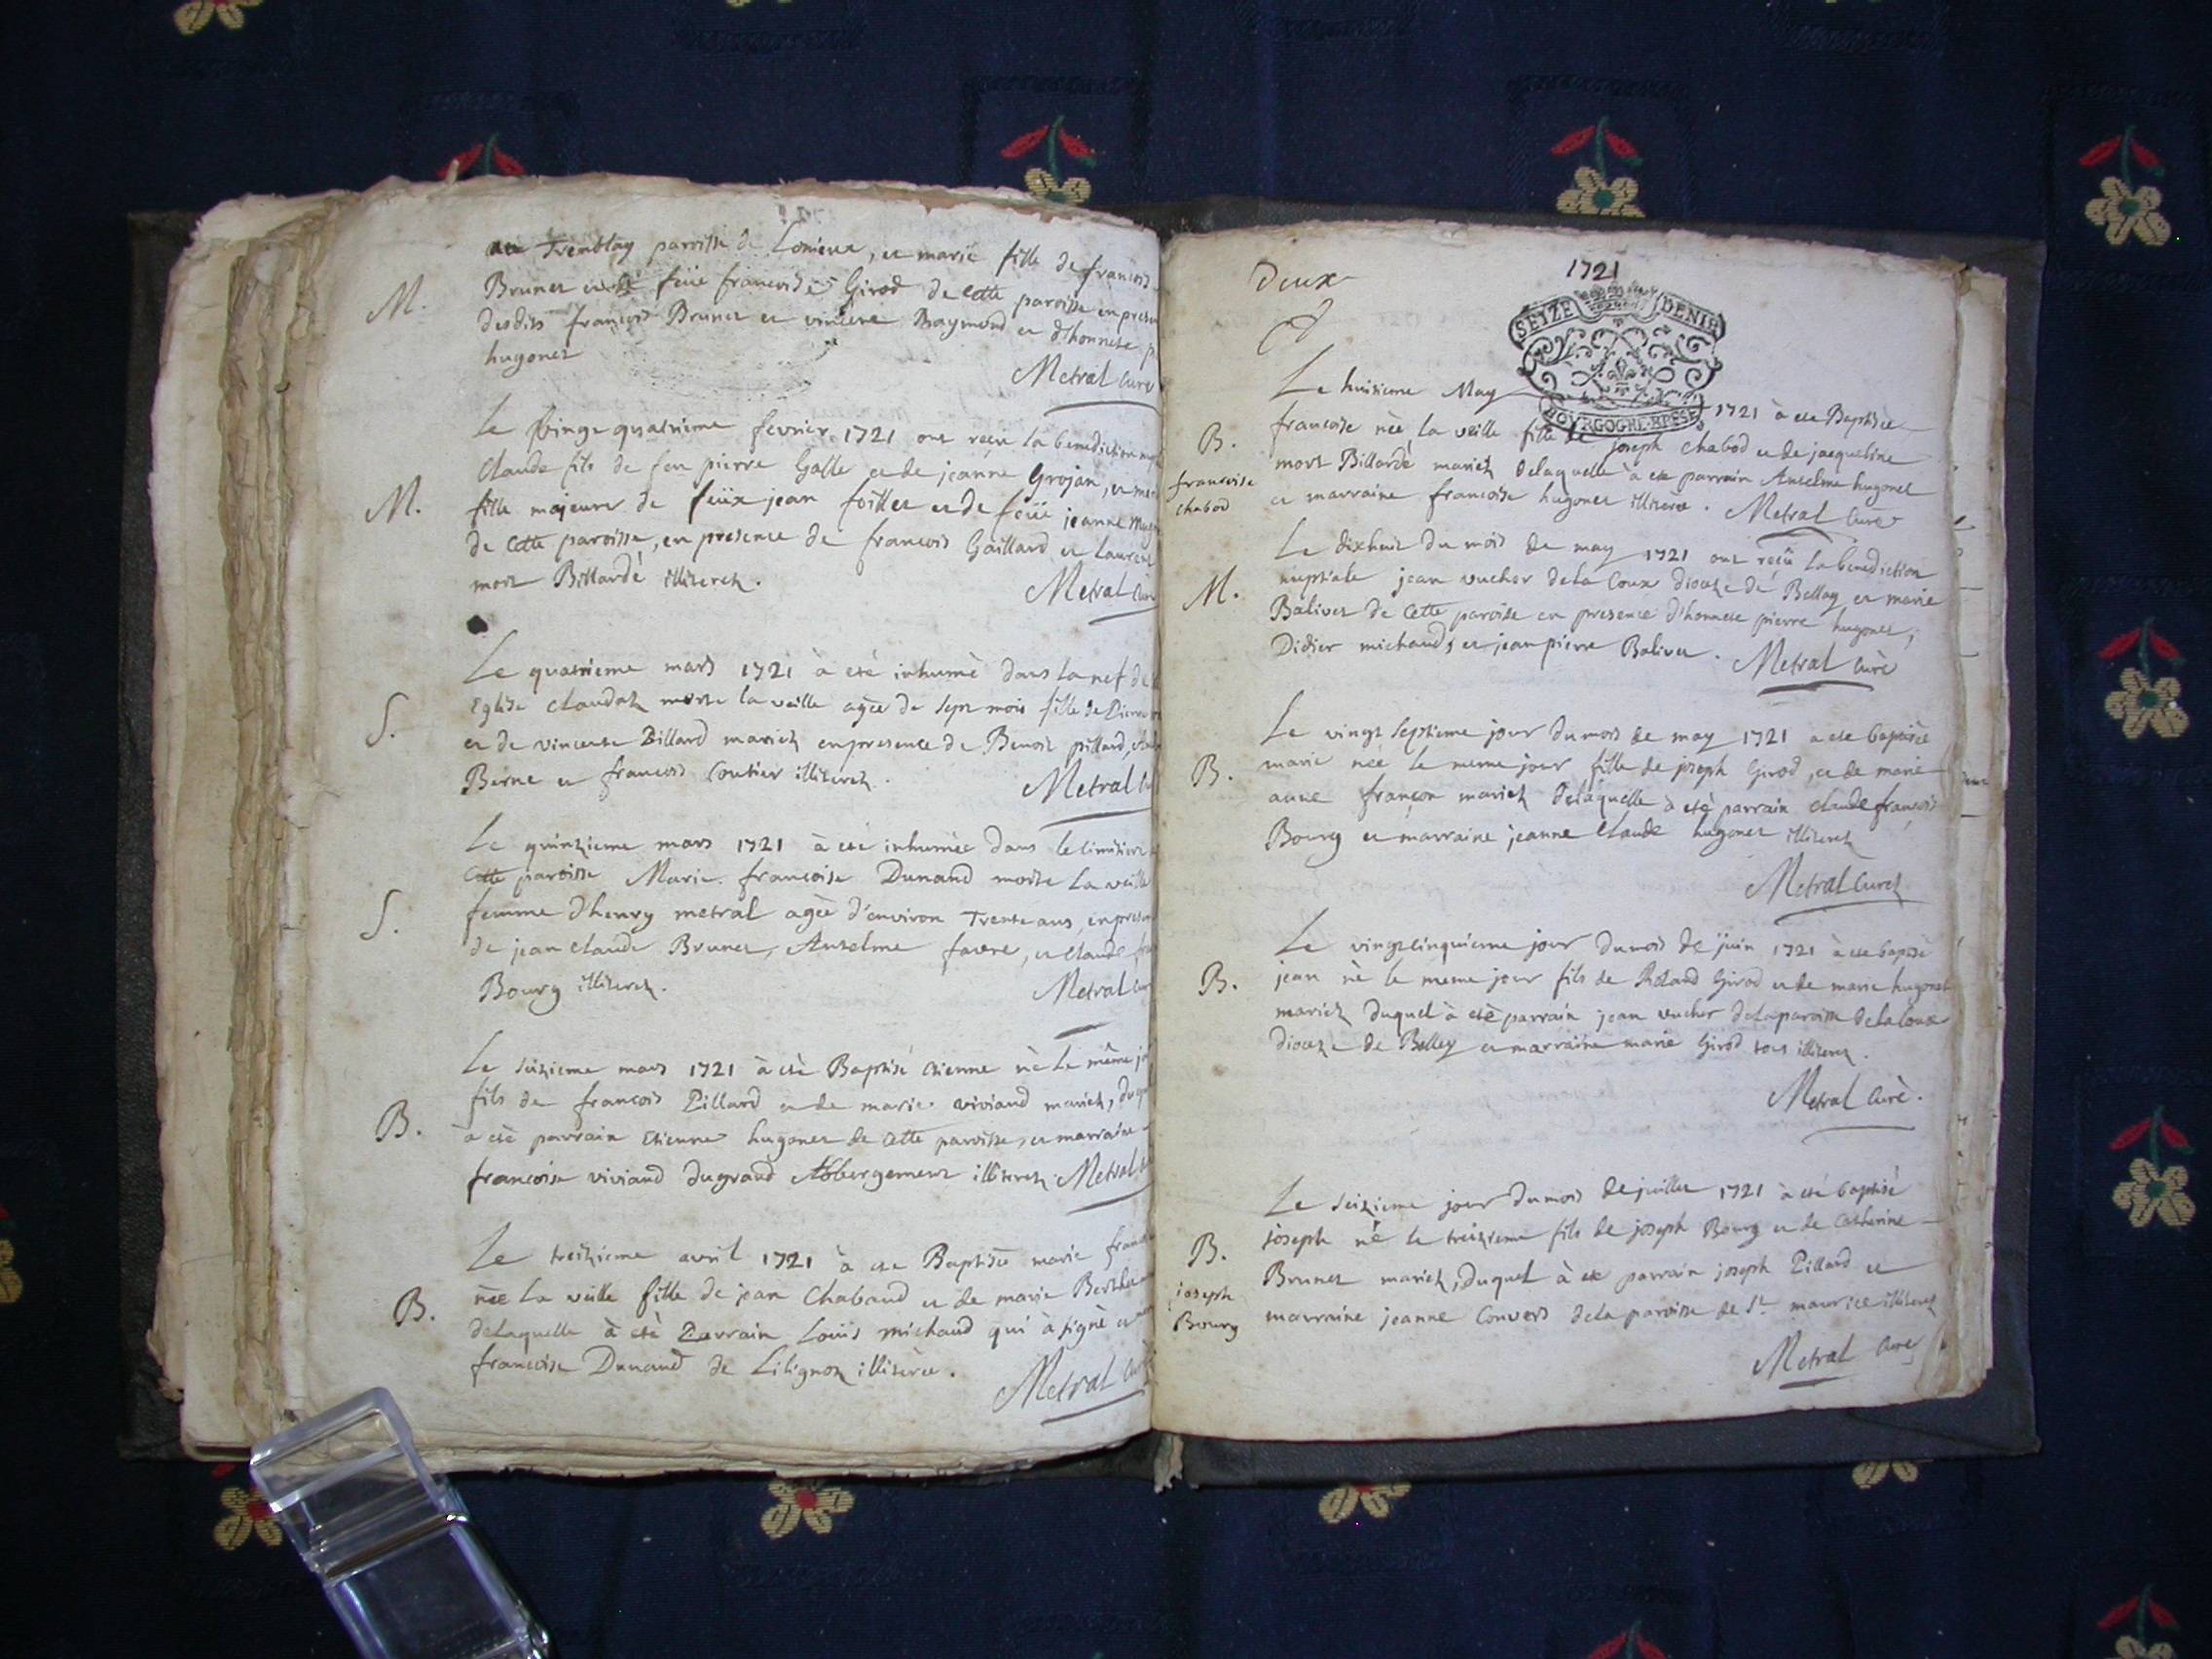 Tremblay paroisse de Lonieux, et marie fille de francois
M.
Brunet et de feüe francoise Girod de Cette paroisse en presen
desdits françois Brunet et vincent Raymond et d'honnete p
hugonet
Metral Curé
Le vingt quatrieme fevrier 1721 ont reçeu la benediction nup
Claude fils de feu pierre Galle et de jeanne Grojan, et ma
M.
fille majeure de feüx jean foillet et de feüe jeanne
de Cette paroisse, en presence de francois Gaillard et Laurent
mort Billardé illiterez.
Metral Cure
Le quatrieme mars 1721 à eté inhumè dans la nef de
S.
Eglise Claudaz morte la veille agèe de sept mois fille de Pierre
et de vincente Billard mariez en presence de Benoit pillard,
Berne et francois Coutier illiterez.
Metral
Le quinzieme mars 1721 à eté inhumèe dans le Cimitiere
Cette paroisse Marie francoise Dunand morte la veille
S.
femme d'henry metral agèe d'environ Trente ans, en presen
de jean claude Brunet, Anselme favre, et Claude
Bourg illiterez.
Metral
Le seizieme mars 1721 à etè Baptisé etienne nè le même jo
fils de francois Pillard et de marie viviand mariez, duqu
B.
à etè parrain etienne hugonet de Cette paroisse, et marraine
francoise viviand du grand Abbergement illiterez Metral
Le treizieme avril 1721 à ete Baptisèe marie franc
B.
nèe la veille fille de jean Chabaud et de marie
delaquelle à etè Parrain Loüis michaud qui à signè et
francoise Dunand de Lilignoz illiterèe.
Metral Curé
Deux
1721
SEIZE DENIE
BOVRGOGNE·BRESSE
Le huitieme May 1721 à ete Baptisèe
B.
francoise nèe la veille fille de joseph chabod et de jacqueline
francoise
chabod
mort Billardé mariez delaquelle à ete parrain Anselme hugonet
et marraine francoise hugonet illiterèe. Metral Curé
Le dixhuit du mois de may 1721 ont reçeü la benediction
M.
nuptiale jean vucher dela Coux dioceze de Bellay et marie
Balivet de Cette paroisse en presence d'honnete pierre hugonet,
Didier michaud, et jean pierre Balivet. Metral Curè
Le vingt septieme jour du mois de may 1721 a ete baptisèe
B.
marie neé le meme jour fille de joseph Girod, et de marie
anne françon mariez delaquelle à etè parrain claude françois
Bourg et marraine jeanne Claude hugonet illiterez
Metral Curez
Le vingt cinquieme jour du mois de juin 1721 à ete baptisè
B.
jean nè le meme jour fils de Roland Girod et de marie hugonet
mariez duquel à etè parrain jean vucher dela paroisse dela Coux
dioceze de Belley et marraine marie Girod tous illiterez.
Metral Curè.
Le seizieme jour du mois de juillet 1721 à eté baptisé
B.
joseph né le treizieme fils de joseph Bourg et de Catherine
joseph
Bourg
Brunet mariez, duquel à ete parrain joseph Pillard et
marraine jeanne Convers dela paroisse de St maurice illiterez
Metral Cure